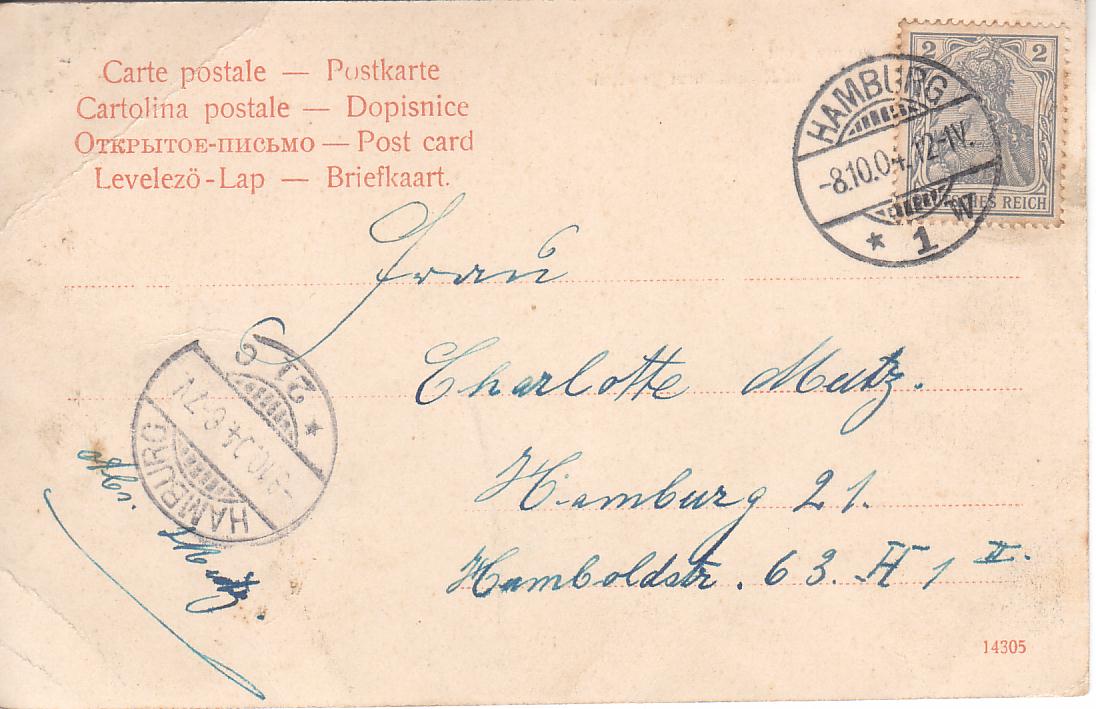 Carte postale — Postkarte
Cartolina postale — Dopisnice
Открытое-письмо — Post card
Levelező-Lap — Briefkaart.
2 2
HES REICH
HAMBURG
-8.10.04.12-1N.
* 1 W.
Frau
Charlotte Matz.
Hamburg 21.
Humboldstr. 63. H 1 II.
HAMBURG
-9.10.04.6-7V.
* 21
Abs.
Matz.
14305